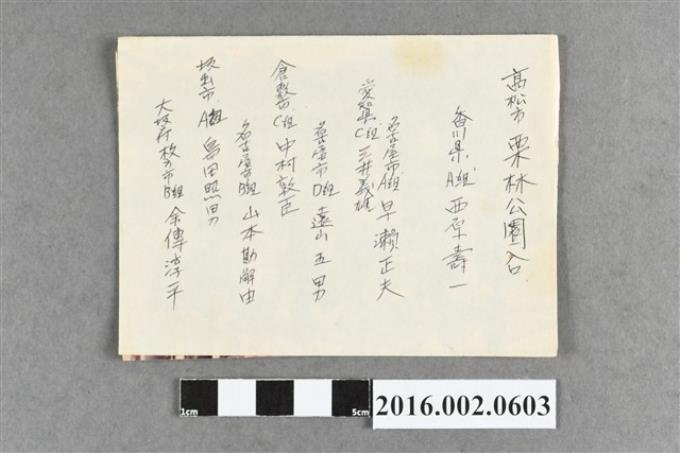 高松市 栗林公園合
香川県 A組 西原壽一
名古屋市A組 早瀬正夫
愛知県C組 三井義雄
名古屋市D組 遠山五男
倉敷市C組 中村敦臣
名古屋市B組 山本勘解由
坂出市 A組 島田照男
大坂府枚方市B組 余傳淳平
1cm 5cm
2016.002.0603